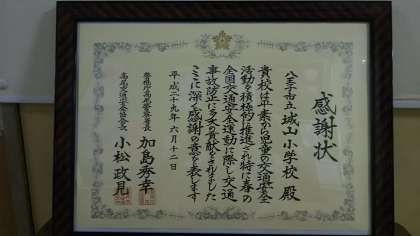 感謝状
八王子市立 城山小学校 殿
貴校は平素から児童の交通安全
活動を積極的に推進され特に春の
全国交通安全運動に際し交通
事故防止に多大の貢献をされました
ここに深く感謝の意を表します
平成二十九年 六月十二日
警視庁高尾警察署長 加島秀幸
高尾交通安全協会長 小松政見